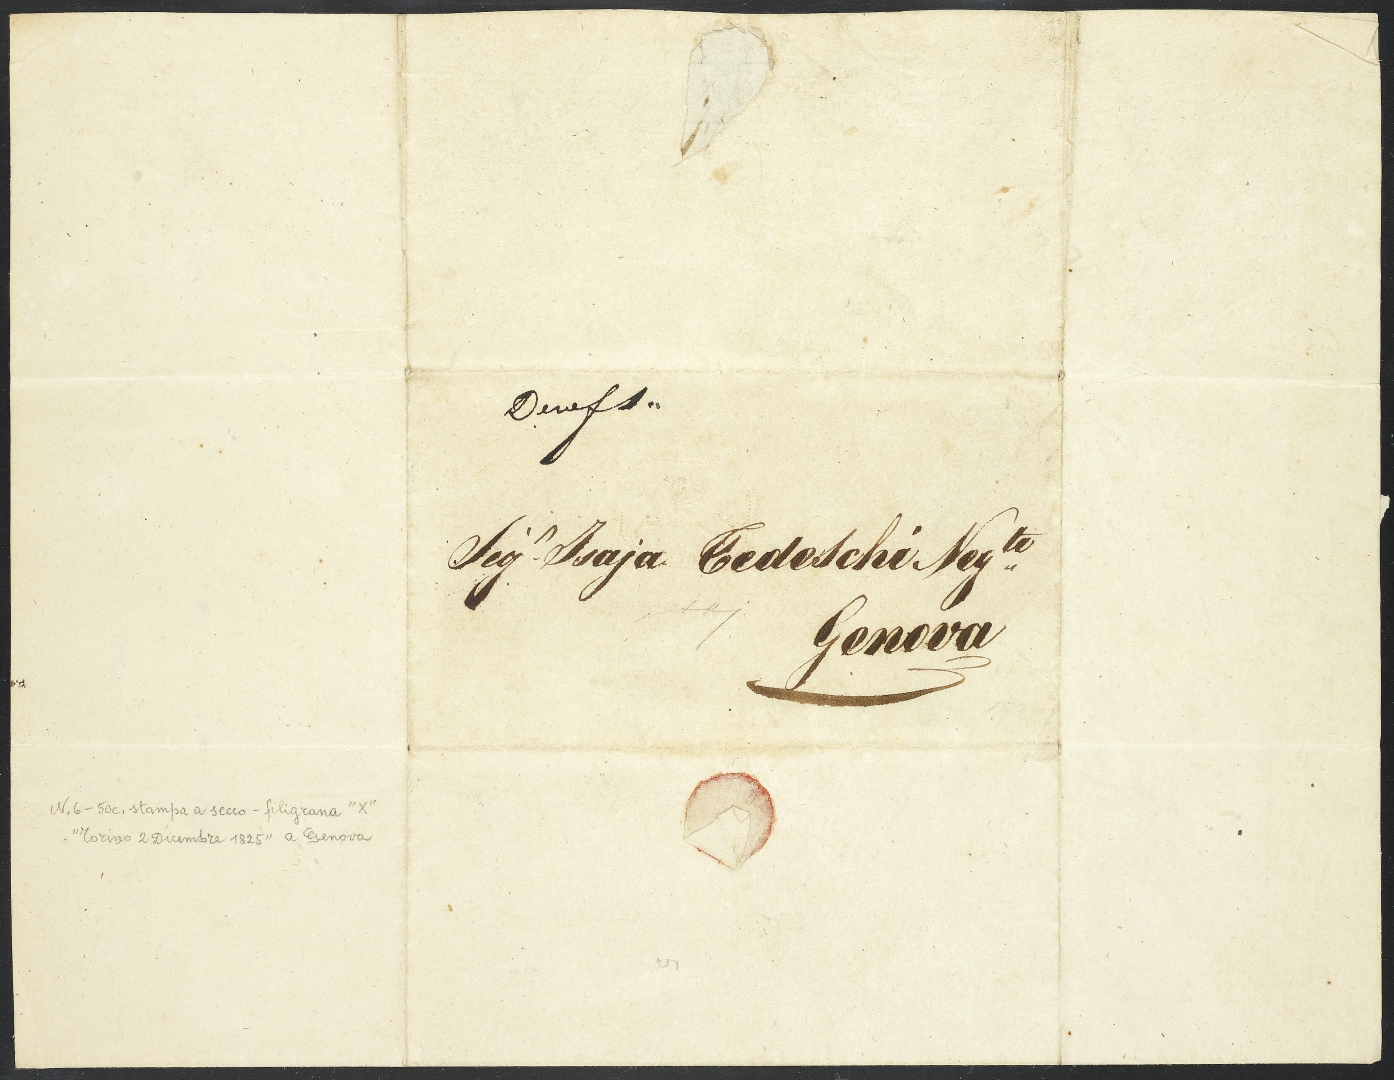 Sig.r Isaja Tedeschi Neg.te
Genova
N. 6 - 50c. stampa a secco - filigrana "X"
"Torino 2 Dicembre 1825" a Genova